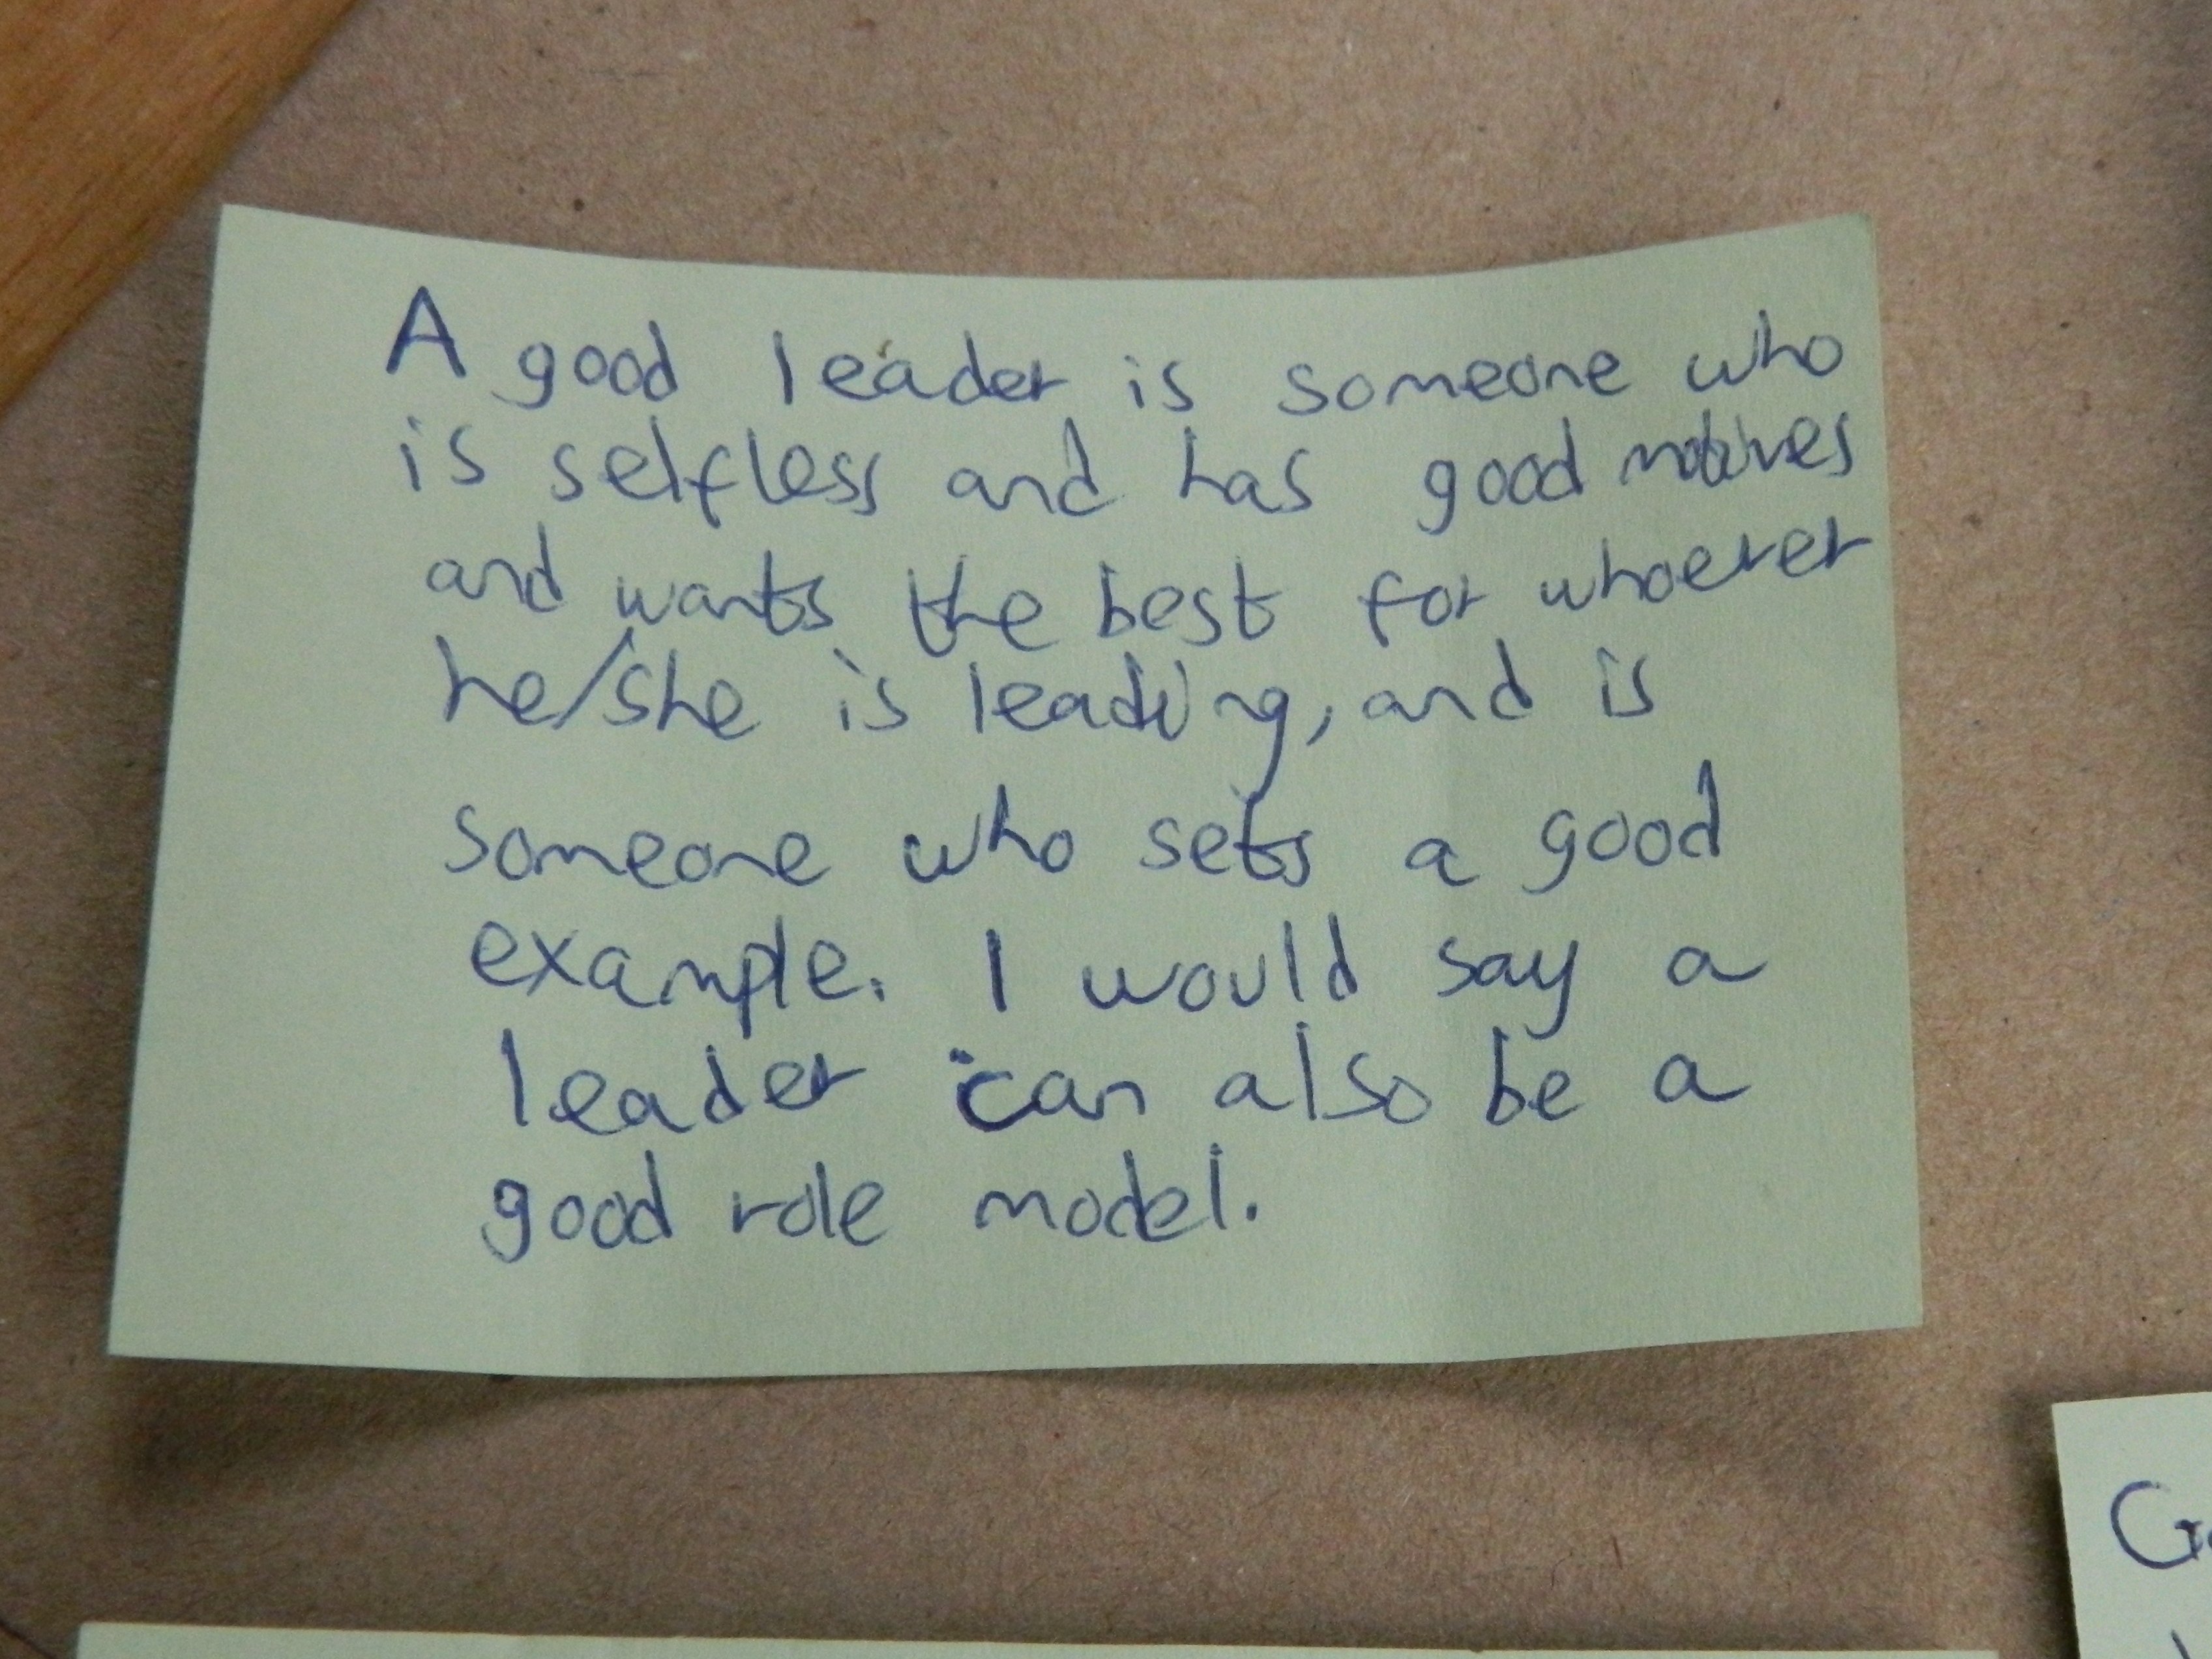 A good leader is someone who
is selfless and has good motives
and wants the best for whoever
he/she is leading, and is
someone who sets a good
example. I would say a
leader can also be a
good role model.